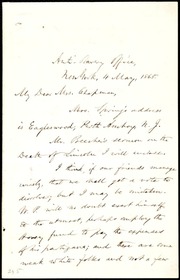 Anti-Slavery Office,
New York, 4 May, 1865.
My Dear Mrs. Chapman,
Mrs. Spring's address
is Eagleswood, Perth Amboy N. J.
Mr. Beecher's sermon on the
Death of Lincoln I will
I think if our friends manage
wisely, that we shall get a vote to
dissolve; but I may be mistaken.
W. P. will no doubt exert himself
to the utmost, perhaps employ the
Hovey fund to pay the expenses
of his partizans; and there are some
weak white folks and not a few